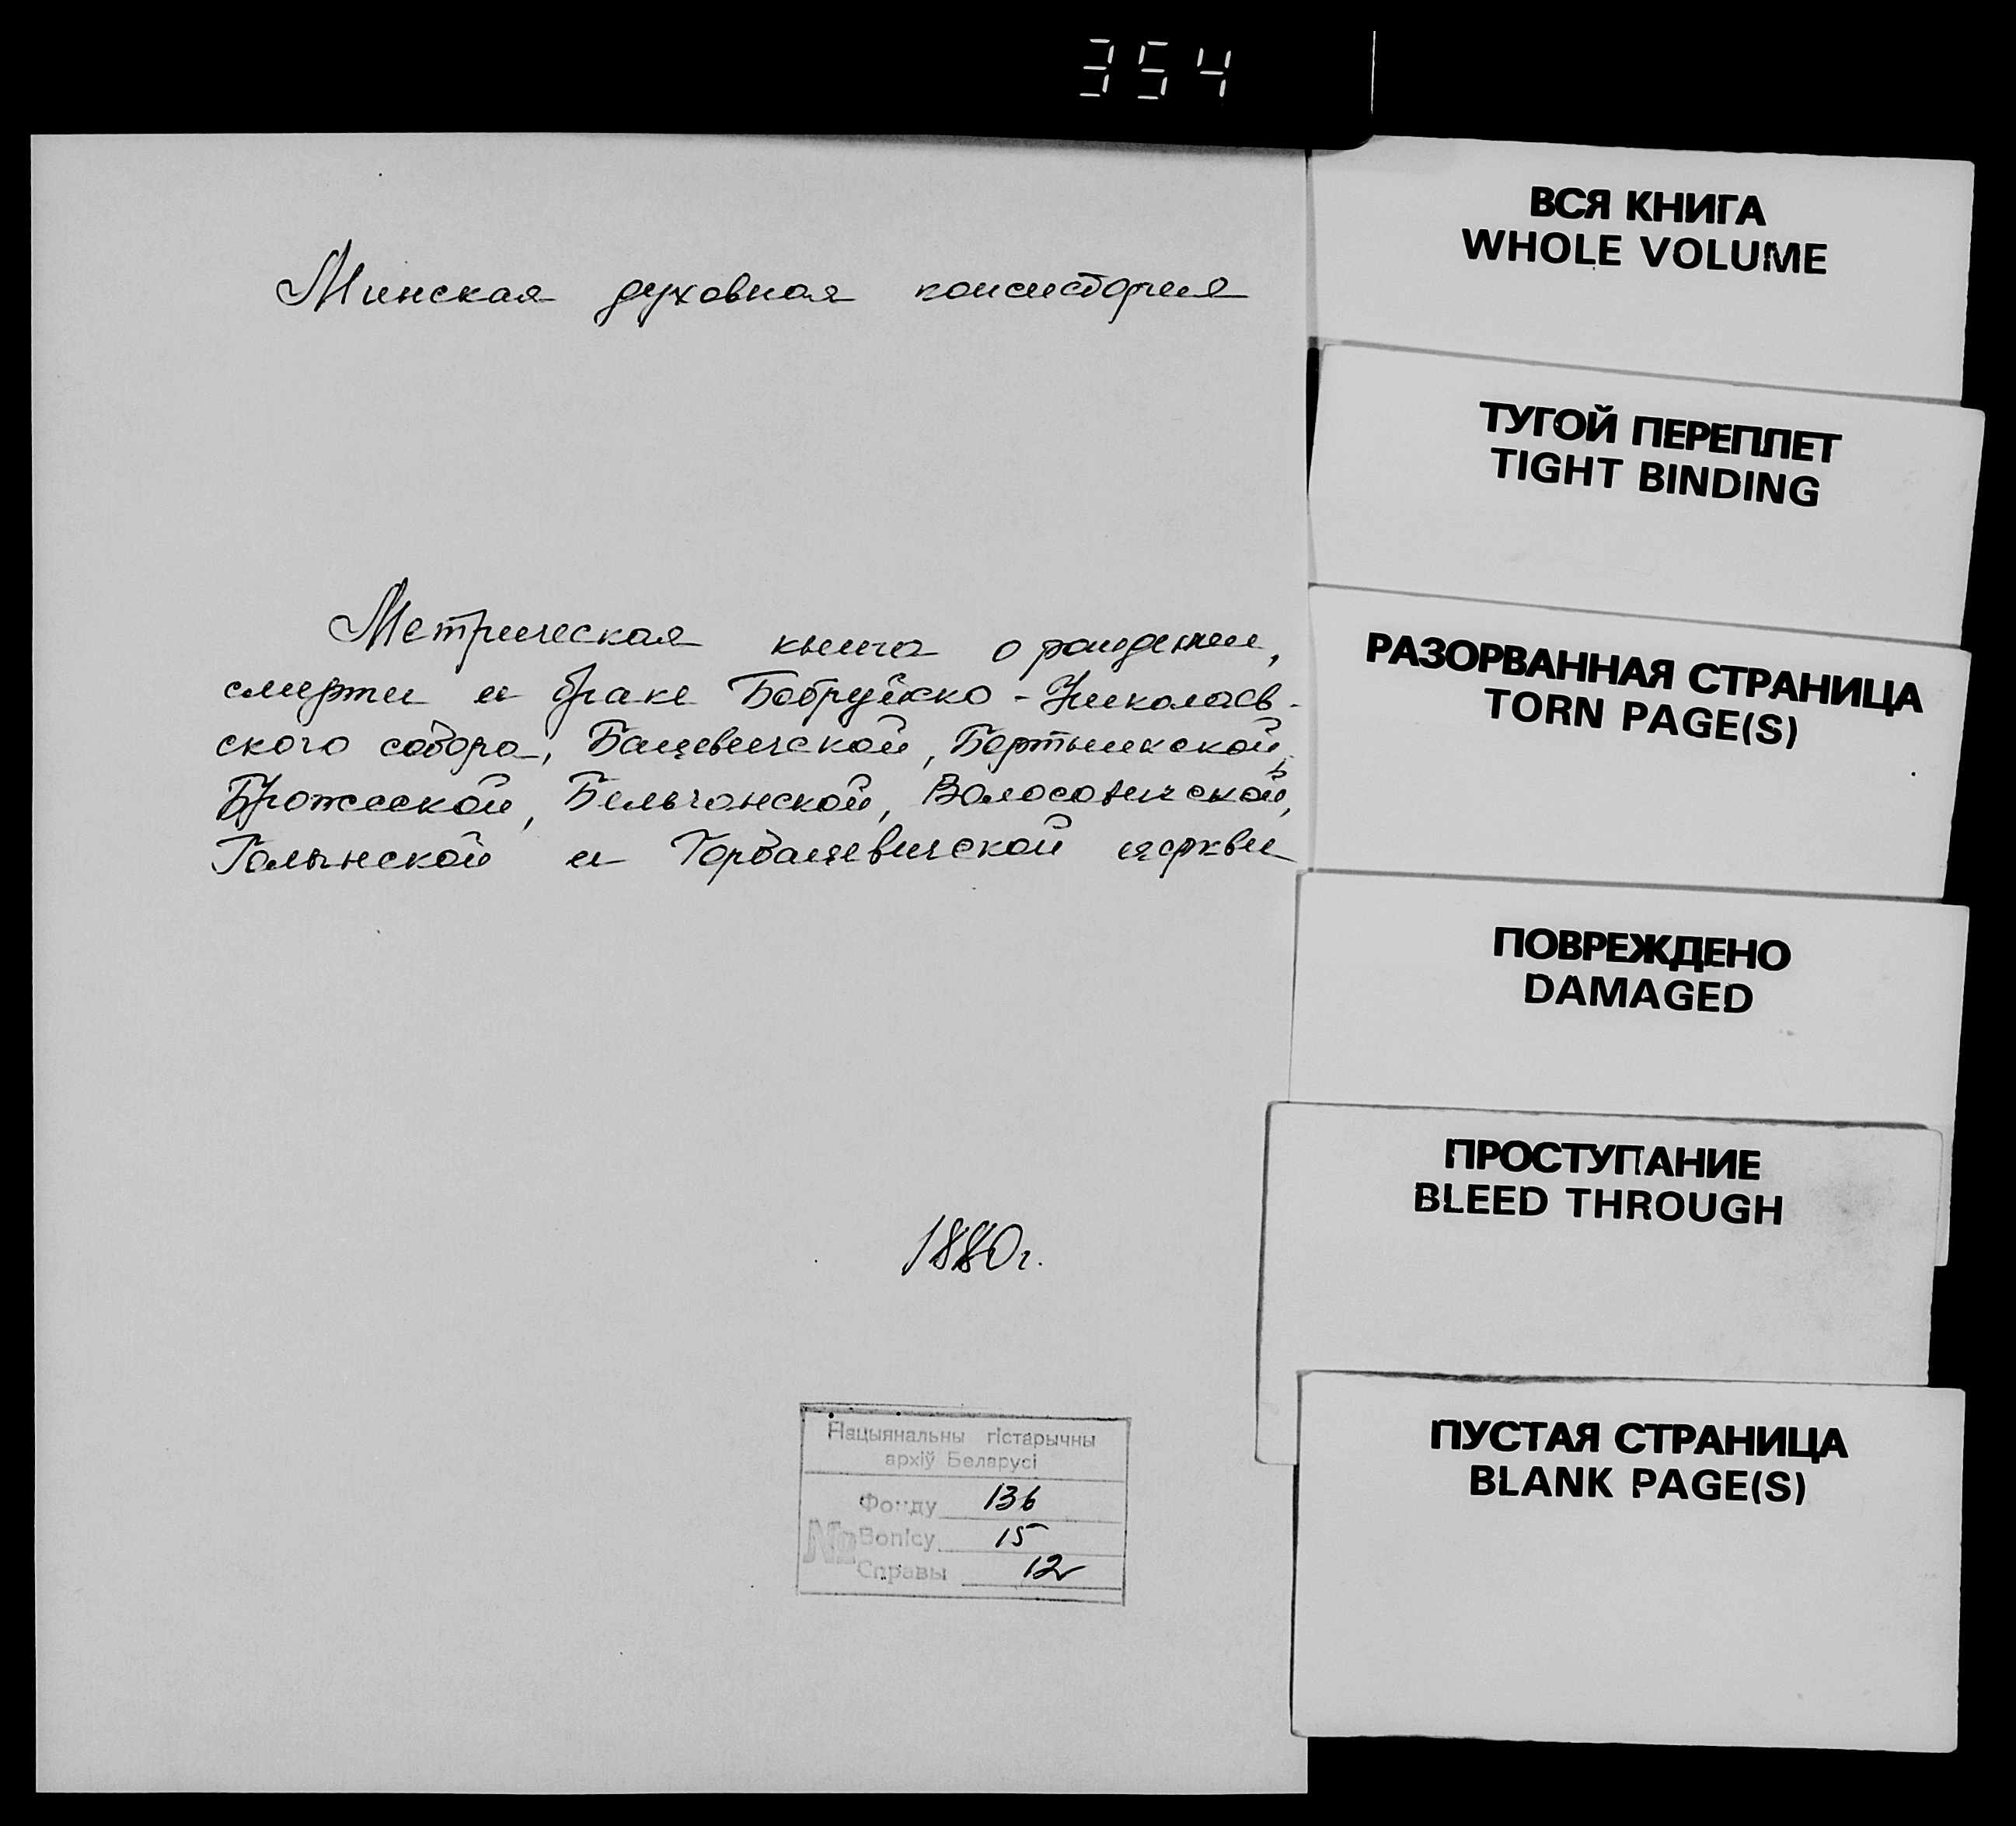 354
Минская духовная консистория
Метрическая книга о рождении,
смерти и браке Бобруйско-Николаев-
ского собора, Бацевичской, Бортникской,
Брожеской, Бельчанской, Волосовичской,
Голынской и Горбацевичской церкви
1880г.
Нацыянальны гістарычны
архіў Беларусі
Фонду 136
№ Вопісу 15
Справы 12
ВСЯ КНИГА
WHOLE VOLUME
ТУГОЙ ПЕРЕПЛЕТ
TIGHT BINDING
РАЗОРВАННАЯ СТРАНИЦА
TORN PAGE(S)
ПОВРЕЖДЕНО
DAMAGED
ПРОСТУПАНИЕ
BLEED THROUGH
ПУСТАЯ СТРАНИЦА
BLANK PAGE(S)